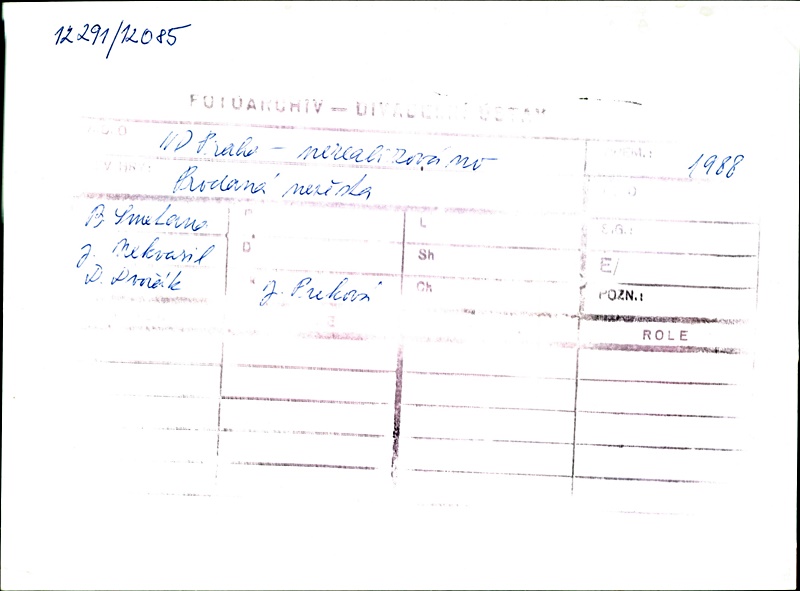 12291/12085
FOTOARCHIV — DIVADELNÍ ÚSTAV
ND Praha – nerealizováno
1988
Prodaná nevěsta
B. Smetana
L
Sg.:
J. Nekvasil
D.
Sh
E/
D. Dvořák
J. Preková
Ch
POZN.:
ROLE